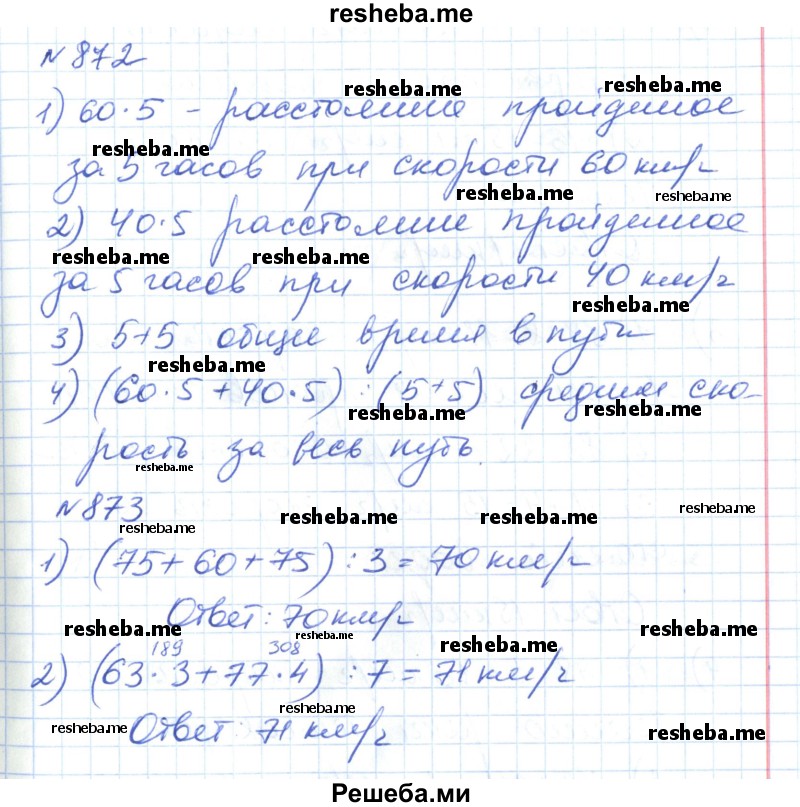 resheba.me
№872
1) 60·5 - расстояние пройденное
resheba.me resheba.me
за 5 часов при скорости 60 км/ч
resheba.me
2) 40·5 расстояние пройденное
resheba.me resheba.me
resheba.me resheba.me
за 5 часов при скорости 40 км/ч
resheba.me
3) 5+5 общее время в пути
resheba.me
4) (60·5+40·5) : (5+5) средняя ско-
resheba.me resheba.me
рость за весь путь.
resheba.me
№873
resheba.me resheba.me resheba.me
resheba.me
1) (75+60+75) : 3 = 70 км/ч
Ответ: 70 км/ч
resheba.me resheba.me resheba.me
resheba.me
189 308
2) (63·3+77·4) : 7 = 71 км/ч
Ответ: 71 км/ч
resheba.me resheba.me
Решеба.ми